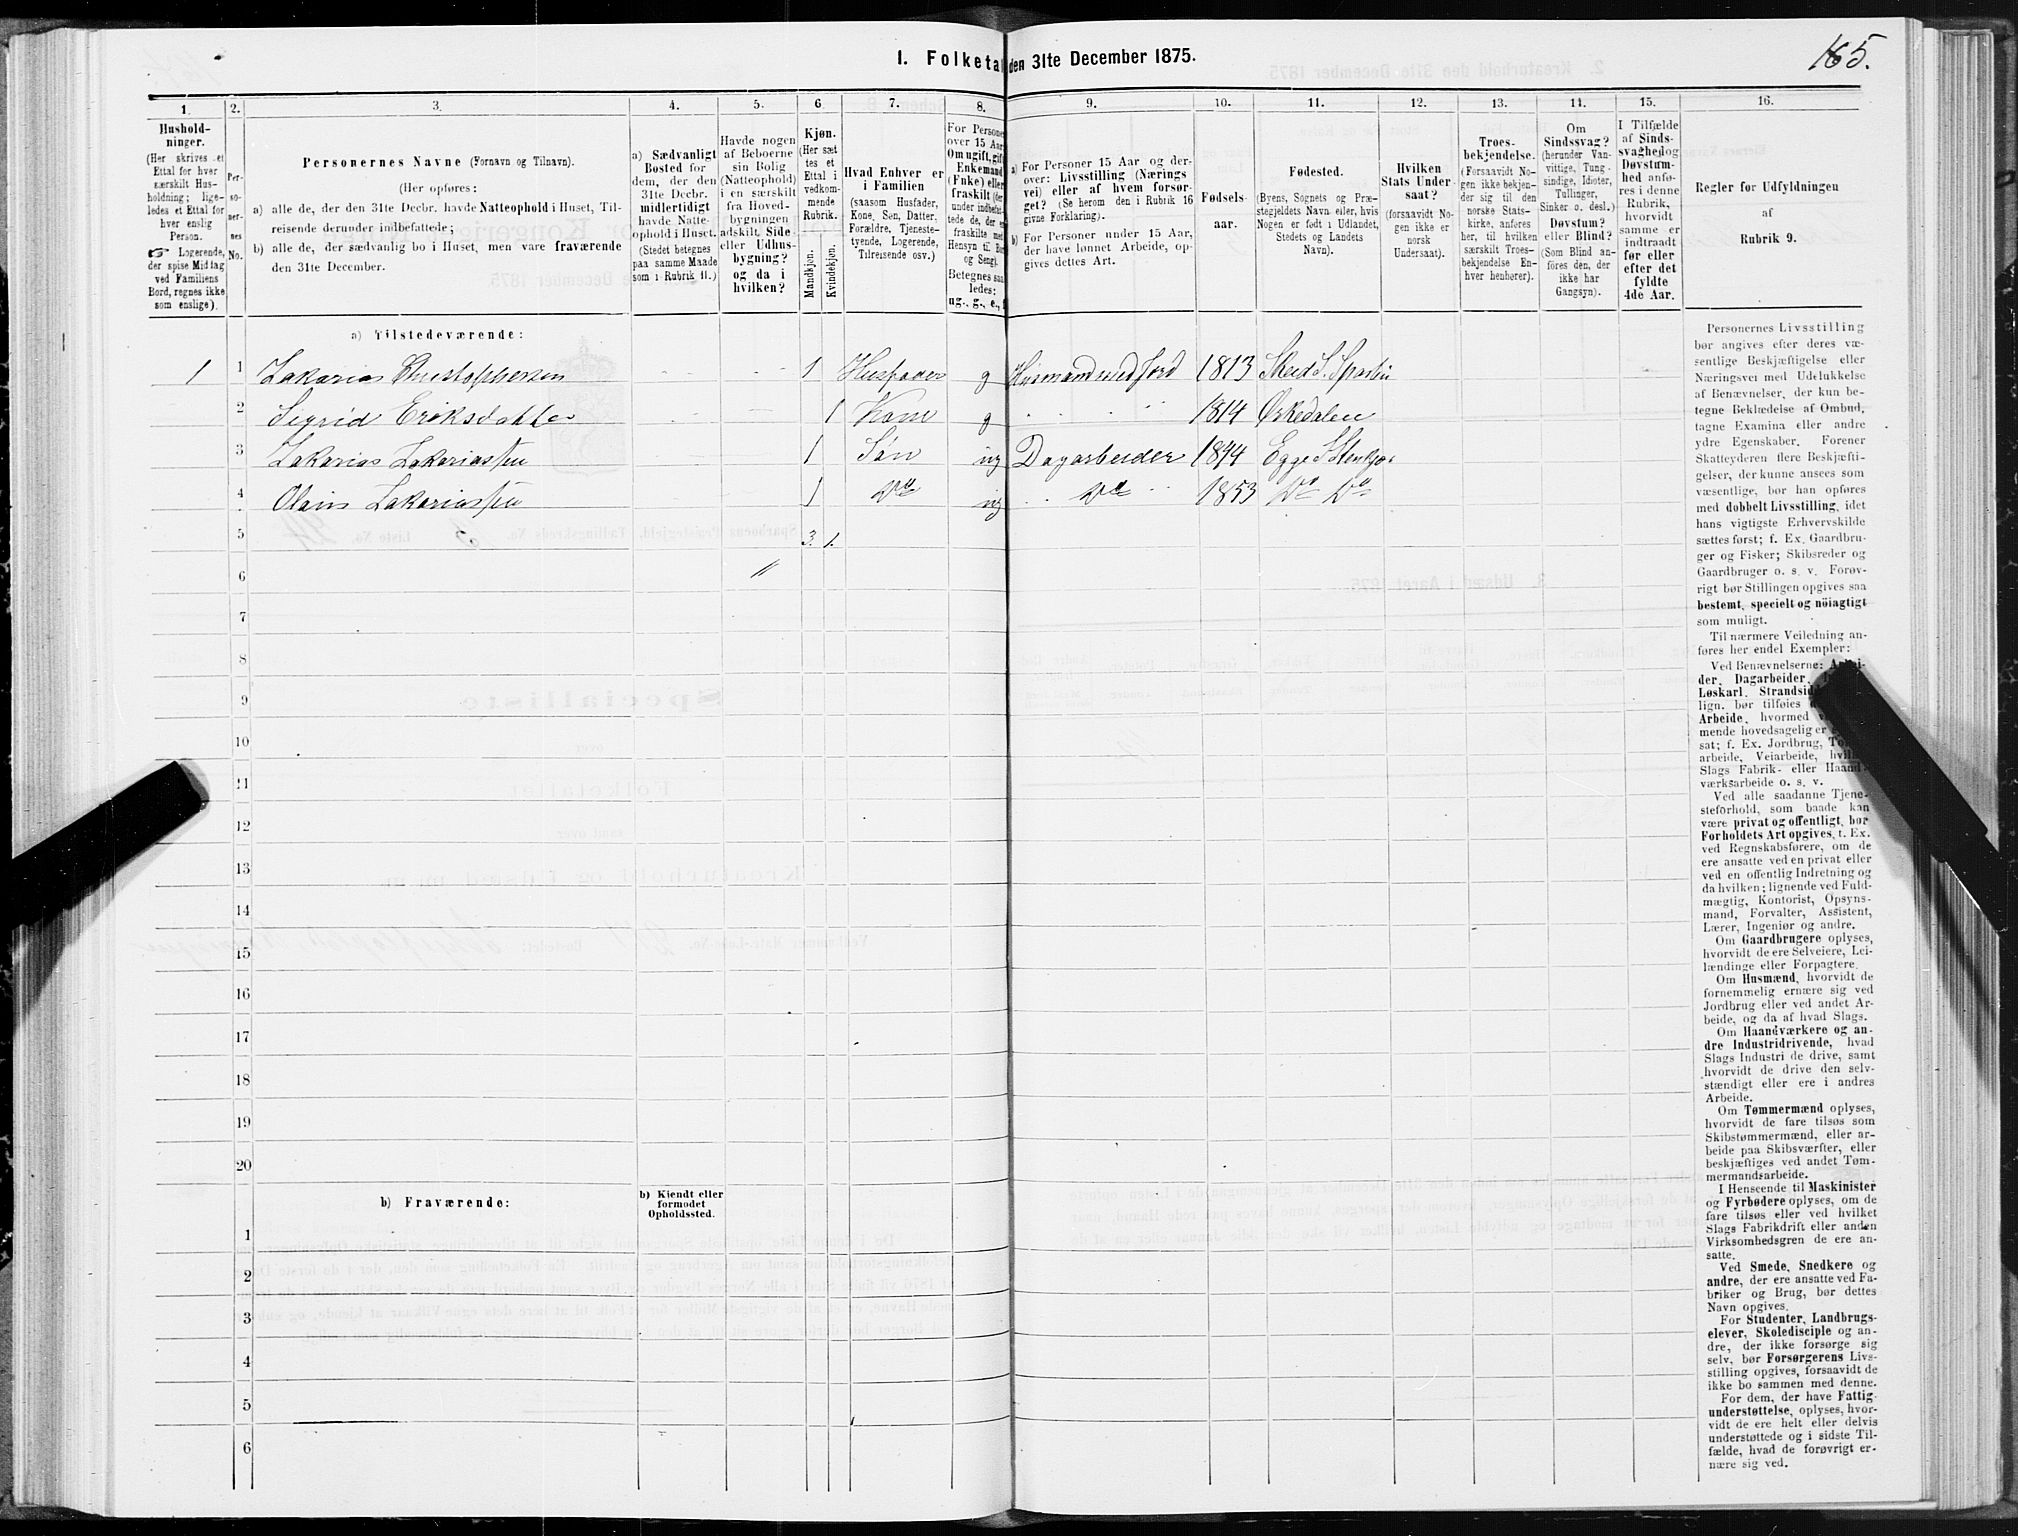 1. Folketal den 31te December 1875.
165.
1.
2.
3.
4.
5.
6.
7.
8.
9.
10.
11.
12.
13.
14.
15.
16.
Hushold-
ninger.
(Her skrives et
Ettal for hver
særskilt Hus-
holdning; lige-
ledes et Ettal for
hver enslig
Person.
☞ Logerende,
der spise Middag
ved Familiens
Bord, regnes ikke
som enslige).
Per-
so-
ner-
nes
No.
Personernes Navne (Fornavn og Tilnavn).
(Her opføres:
a) alle de, der den 31te Decbr. havde Natteophold i Huset, Til-
reisende derunder indbefattede;
b) alle de, der sædvanlig bo i Huset, men vare fraværende
den 31te December.
a) Sædvanligt
Bosted for
dem, der den
31te Decbr.
midlertidigt
havde Natte-
ophold i Huset.
(Stedet betegnes
paa samme Maade
som i Rubrik 11.)
Havde nogen
af Beboerne
sin Bolig
(Natteophold)
i en særskilt
fra Hoved-
bygningen
adskilt Side
eller Udhus-
bygning?
og da i
hvilken?
Kjøn.
(Her sæt
tes et
Ettal i
vedkom-
mende
Rubrik.
Mandkjøn.
Kvindekjøn.
Hvad Enhver er
i Familien
(saasom Husfader,
Kone, Søn, Datter,
Forældre, Tjeneste-
tyende, Logerende,
Tilreisende osv.)
For Persone
over 15 Aar
Om ugift, gift
Enkemand
(Enke) eller
fraskilt (der
under indbefat-
tede de, der er
fraskilte med
Hensyn til Bor
og Seng).
Betegnes saa
ledes:
ug., g., e.,
a) For Personer 15 Aar og der-
over: Livsstilling (Nærings
vei) eller af hvem forsør-
get? (Se herom den i Rubrik 16
givne Forklaring).
b) For Personer under 15 Aar,
der have lønnet Arbeide, op-
gives dettes Art.
Fødsels-
aar.
Fødested.
(Byens, Sognets og Præ-
stegjeldets Navn eller, hvis
Nogen er født i Udlandet,
Stedets og Landets
Navn).
Hvilken
Stats Under-
saat?
(forsaavidt No-
gen ikke er
norsk
Undersaat).
Troes-
bekjendelse.
(Forsaavidt No-
gen ikke bekjen-
der sig til den
norske Stats-
kirke, anføres
her, til hvilken
særskilt Troes-
bekjendelse En-
hver henhører).
Om
Sindssvag?
(herunder Van-
vittige, Tung-
sindige, Idioter,
Tullinger,
Sinker o. desl.)
Døvstum?
eller Blind?
(Som Blind an-
føres den, der
ikke har
Gangsyn).
I Tilfælde
af Sinds-
svaghed og
Døvstum-
hed anfø-
res i denne
Rubrik,
hvorvidt
samme er
indtraadt
før eller
efter det
fyldte
4de Aar.
Regler for Udfyldningen
af
Rubrik 9.
a) Tilstedeværende:
1 1 Zakarias Christophersen 1 Husfader g Husmand med Jord 1813 Skeid S. Sparbu
2 Sigrid Eriksdatter 1 Kone g 1814 Ørkedalen
3 Zakarias Zakariassen 1 Søn ug Dagarbeider 1844 Egge S.
4 Olaus Zakariassen 1 Do ug Do 1853 Do Do
5 3. 1.
6
7
8
9
10
11
12
13
14
15
16
17
18
19
20
b) Fraværende:
b) Kjendt eller
formodet
Opholdssted.
1
2
3
4
5
6
Personernes Livsstilling
bør angives efter deres væ-
sentlige Beskjæftigelse eller
Næringsvei med Udelukkelse
af Benævnelser, der kun be-
tegne Beklædelse af Ombud,
tagne Examina eller andre
ydre Egenskaber. Forener
Skatteyderen flere Beskjæfti-
gelser, der kunne ansees som
væsentlige, bør han opføres
med dobbelt Livsstilling, idet
hans vigtigste Erhvervskilde
sættes først; f. Ex. Gaardbru-
ger og Fisker; Skibsreder og
Gaardbruger o. s. v. Forøv-
rigt bør Stillingen opgives saa
bestemt, specielt og nøiagtigt
som muligt.
Til nærmere Veiledning an-
føres her endel Exempler:
Ved Benævnelserne: Arbei-
der, Dagarbeider,
Løskarl, Strandsid
lign. bør tilføies
Arbeide, hvormed
mende hovedsagelig er
sat; f. Ex. Jordbrug,
arbeide, Veiarbeide,
Slags Fabrik- eller Haand-
værksarbeide o. s. v.
Ved alle saadanne Tjene-
steforhold, som baade kan
være privat og offentligt, bør
Forholdets Art opgives, t. Ex.
ved Regnskabsførere, om de
ere ansatte ved en privat eller
ved en offentlig Indretning og
da hvilken; lignende ved Fuld-
mægtig, Kontorist, Opsyns-
mand, Forvalter, Assistent,
Lærer, Ingeniør og andre.
Om Gaardbrugere oplyses,
hvorvidt de ere Selveiere, Lei-
lændinge eller Forpagtere.
Om Husmænd, hvorvidt de
fornemmelig ernære sig ved
Jordbrug eller ved andet Ar-
beide, og da af hvad Slags.
Om Haandværkere og an-
dre Industridrivende, hvad
Slags Industri de drive, samt
hvorvidt de drive den selv-
stændigt eller ere i andres
Arbeide.
Om Tømmermænd oplyses,
hvorvidt de fare tilsøs som
Skibstømmermænd, eller ar-
beide paa Skibsværfter, eller
beskjæftiges ved andet Tøm-
mermandsarbeide.
I Henseende til Maskinister
og Fyrbødere oplyses, om de
fare tilsøs eller ved hvilket
Slags Fabrikdrift eller anden
Virksomhedsgren de ere an-
satte.
Ved Smede, Snedkere og
andre, der ere ansatte ved Fa-
briker og Brug, bør dettes
Navn opgives.
For Studenter, Landbrugs-
elever, Skoledisciple og an-
dre, der ikke forsørge sig
selv, bør Forsørgerens Livs-
stilling opgives, forsaavidt de
ikke bo sammen med denne.
For dem, der have Fattig-
understøttelse, oplyses, hvor-
vidt de ere helt eller delvis
understøttede og i sidste Til-
fælde, hvad de forøvrigt er-
nære sig ved.